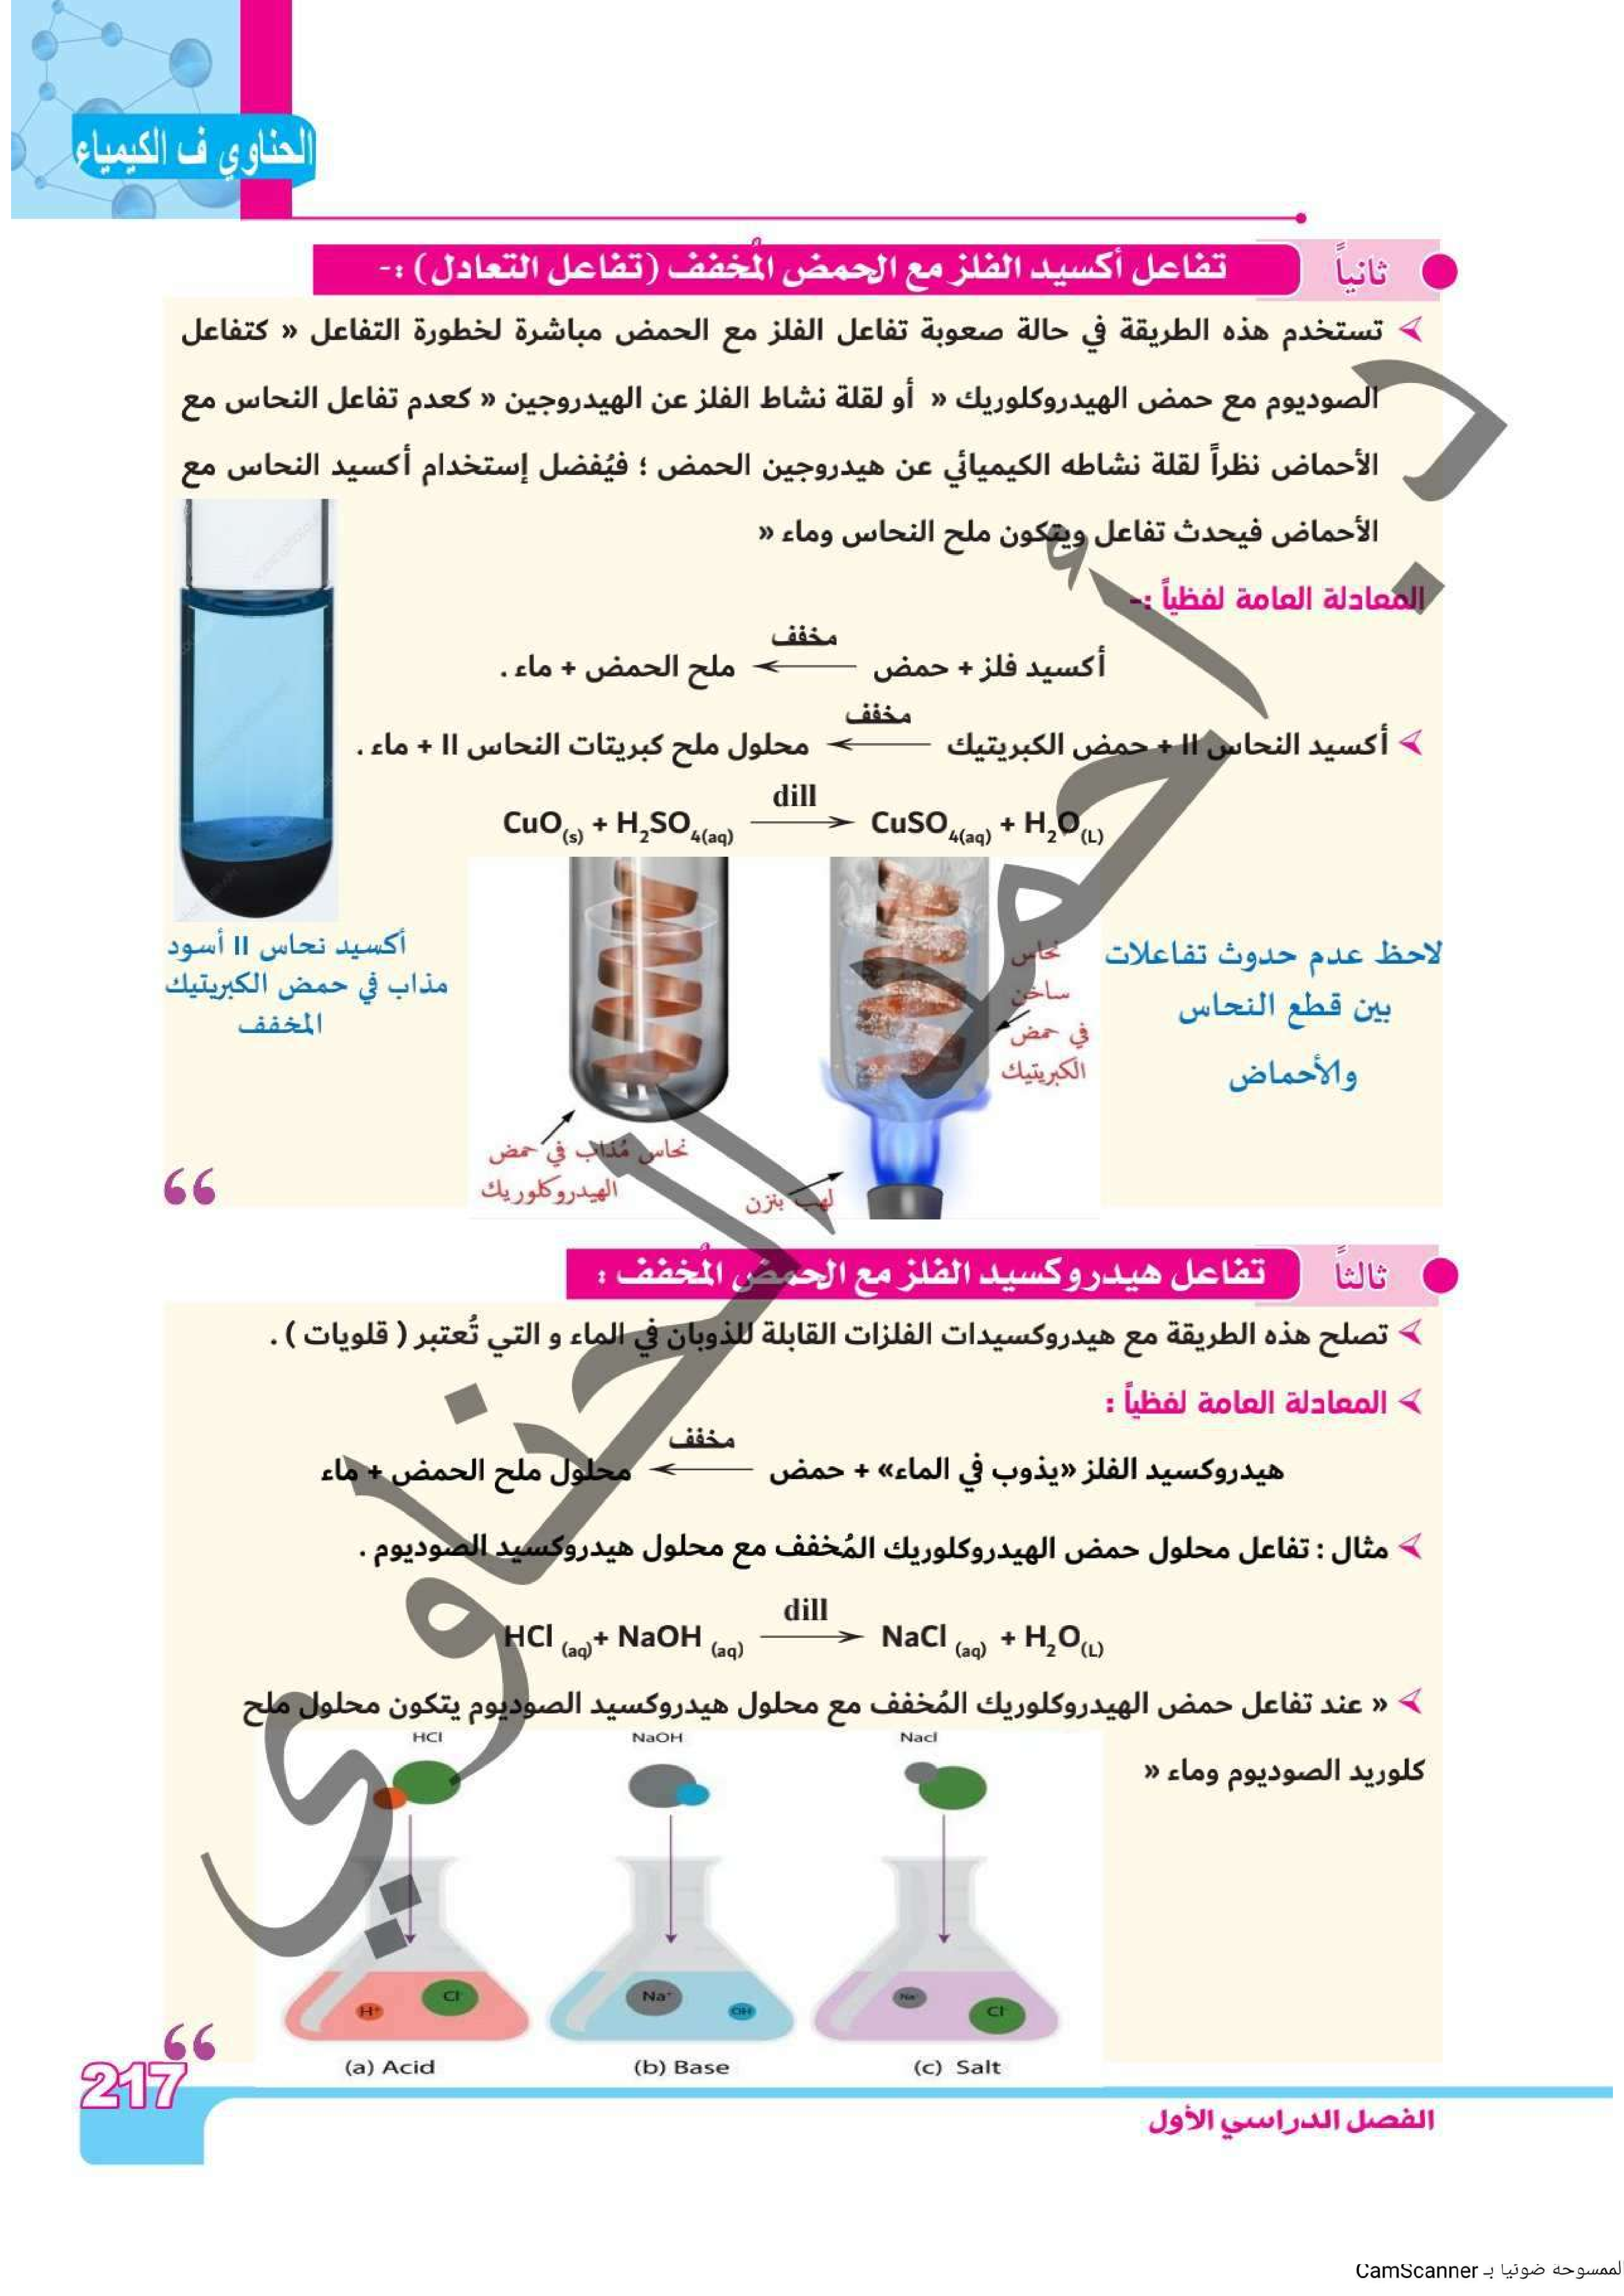 الحناوي ف الكيمياء
ثانياً
تفاعل أكسيد الفلز مع الحمض المُخفف (تفاعل التعادل) :-
تستخدم هذه الطريقة في حالة صعوبة تفاعل الفلز مع الحمض مباشرة لخطورة التفاعل » كتفاعل
الصوديوم مع حمض الهيدروكلوريك » أو لقلة نشاط الفلز عن الهيدروجين » كعدم تفاعل النحاس مع
الأحماض نظراً لقلة نشاطه الكيميائي عن هيدروجين الحمض ؛ فيُفضل إستخدام أكسيد النحاس مع
الأحماض فيحدث تفاعل ويتكون ملح النحاس وماء »
المعادلة العامة لفظياً :-
مخفف
أكسيد فلز + حمض ← ملح الحمض + ماء .
مخفف
أكسيد النحاس II + حمض الكبريتيك ← محلول ملح كبريتات النحاس II + ماء .
dill
CuO(s) + H2SO4(aq) → CuSO4(aq) + H2O(L)
أكسيد نحاس II أسود
مذاب في حمض الكبريتيك
المخفف
نحاس مُذاب في حمض
الهيدروكلوريك
نحاس
ساخن
في حمض
الكبريتيك
لهب بنزن
لاحظ عدم حدوث تفاعلات
بين قطع النحاس
والأحماض
ثالثاً
تفاعل هيدروكسيد الفلز مع الحمض المُخفف :
تصلح هذه الطريقة مع هيدروكسيدات الفلزات القابلة للذوبان في الماء و التي تُعتبر ( قلويات ) .
المعادلة العامة لفظياً :
مخفف
هيدروكسيد الفلز «يذوب في الماء» + حمض ← محلول ملح الحمض + ماء
مثال : تفاعل محلول حمض الهيدروكلوريك المُخفف مع محلول هيدروكسيد الصوديوم .
dill
HCl (aq)+ NaOH (aq) → NaCl (aq) + H2O(L)
» عند تفاعل حمض الهيدروكلوريك المُخفف مع محلول هيدروكسيد الصوديوم يتكون محلول ملح
كلوريد الصوديوم وماء »
HCl NaOH Nacl
H+ Cl- Na+ OH- Na+ Cl-
(a) Acid (b) Base (c) Salt
217
الفصل الدراسي الأول
د. أحمد الحناوي
الممسوحة ضوئيا بـ CamScanner